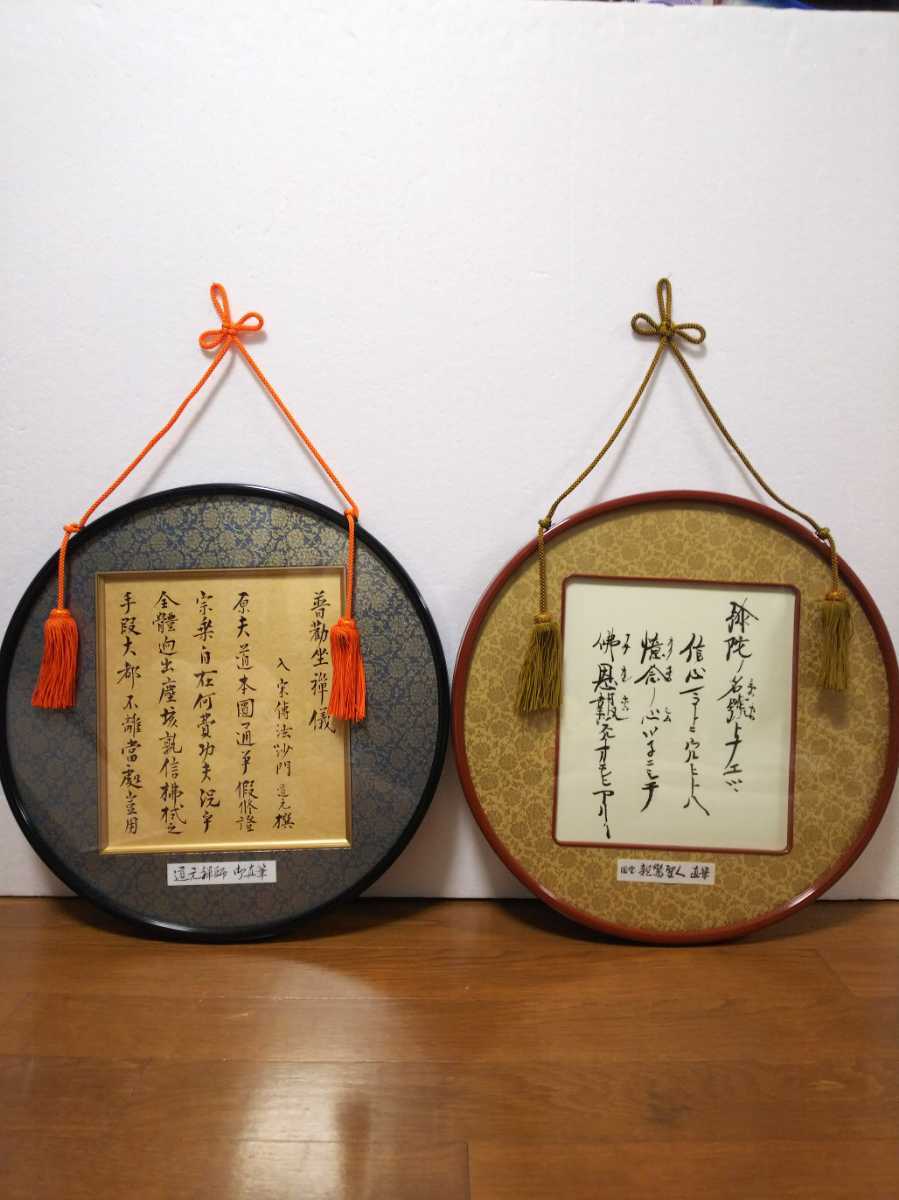 普勸坐禪儀
入宋傳法沙門道元撰
原夫道本圓通争假修證
宗乗自在何費功夫況乎
全體迥出塵埃孰信拂拭之
手段大都不離當處豈用
道元禅師 御真筆
弥陀ノ名號トナエツヽ
信心マコトニウルヒトハ
憶念ノ心ツネニシテ
佛恩報スルオモヒアリ
国宝 親鸞聖人 真筆